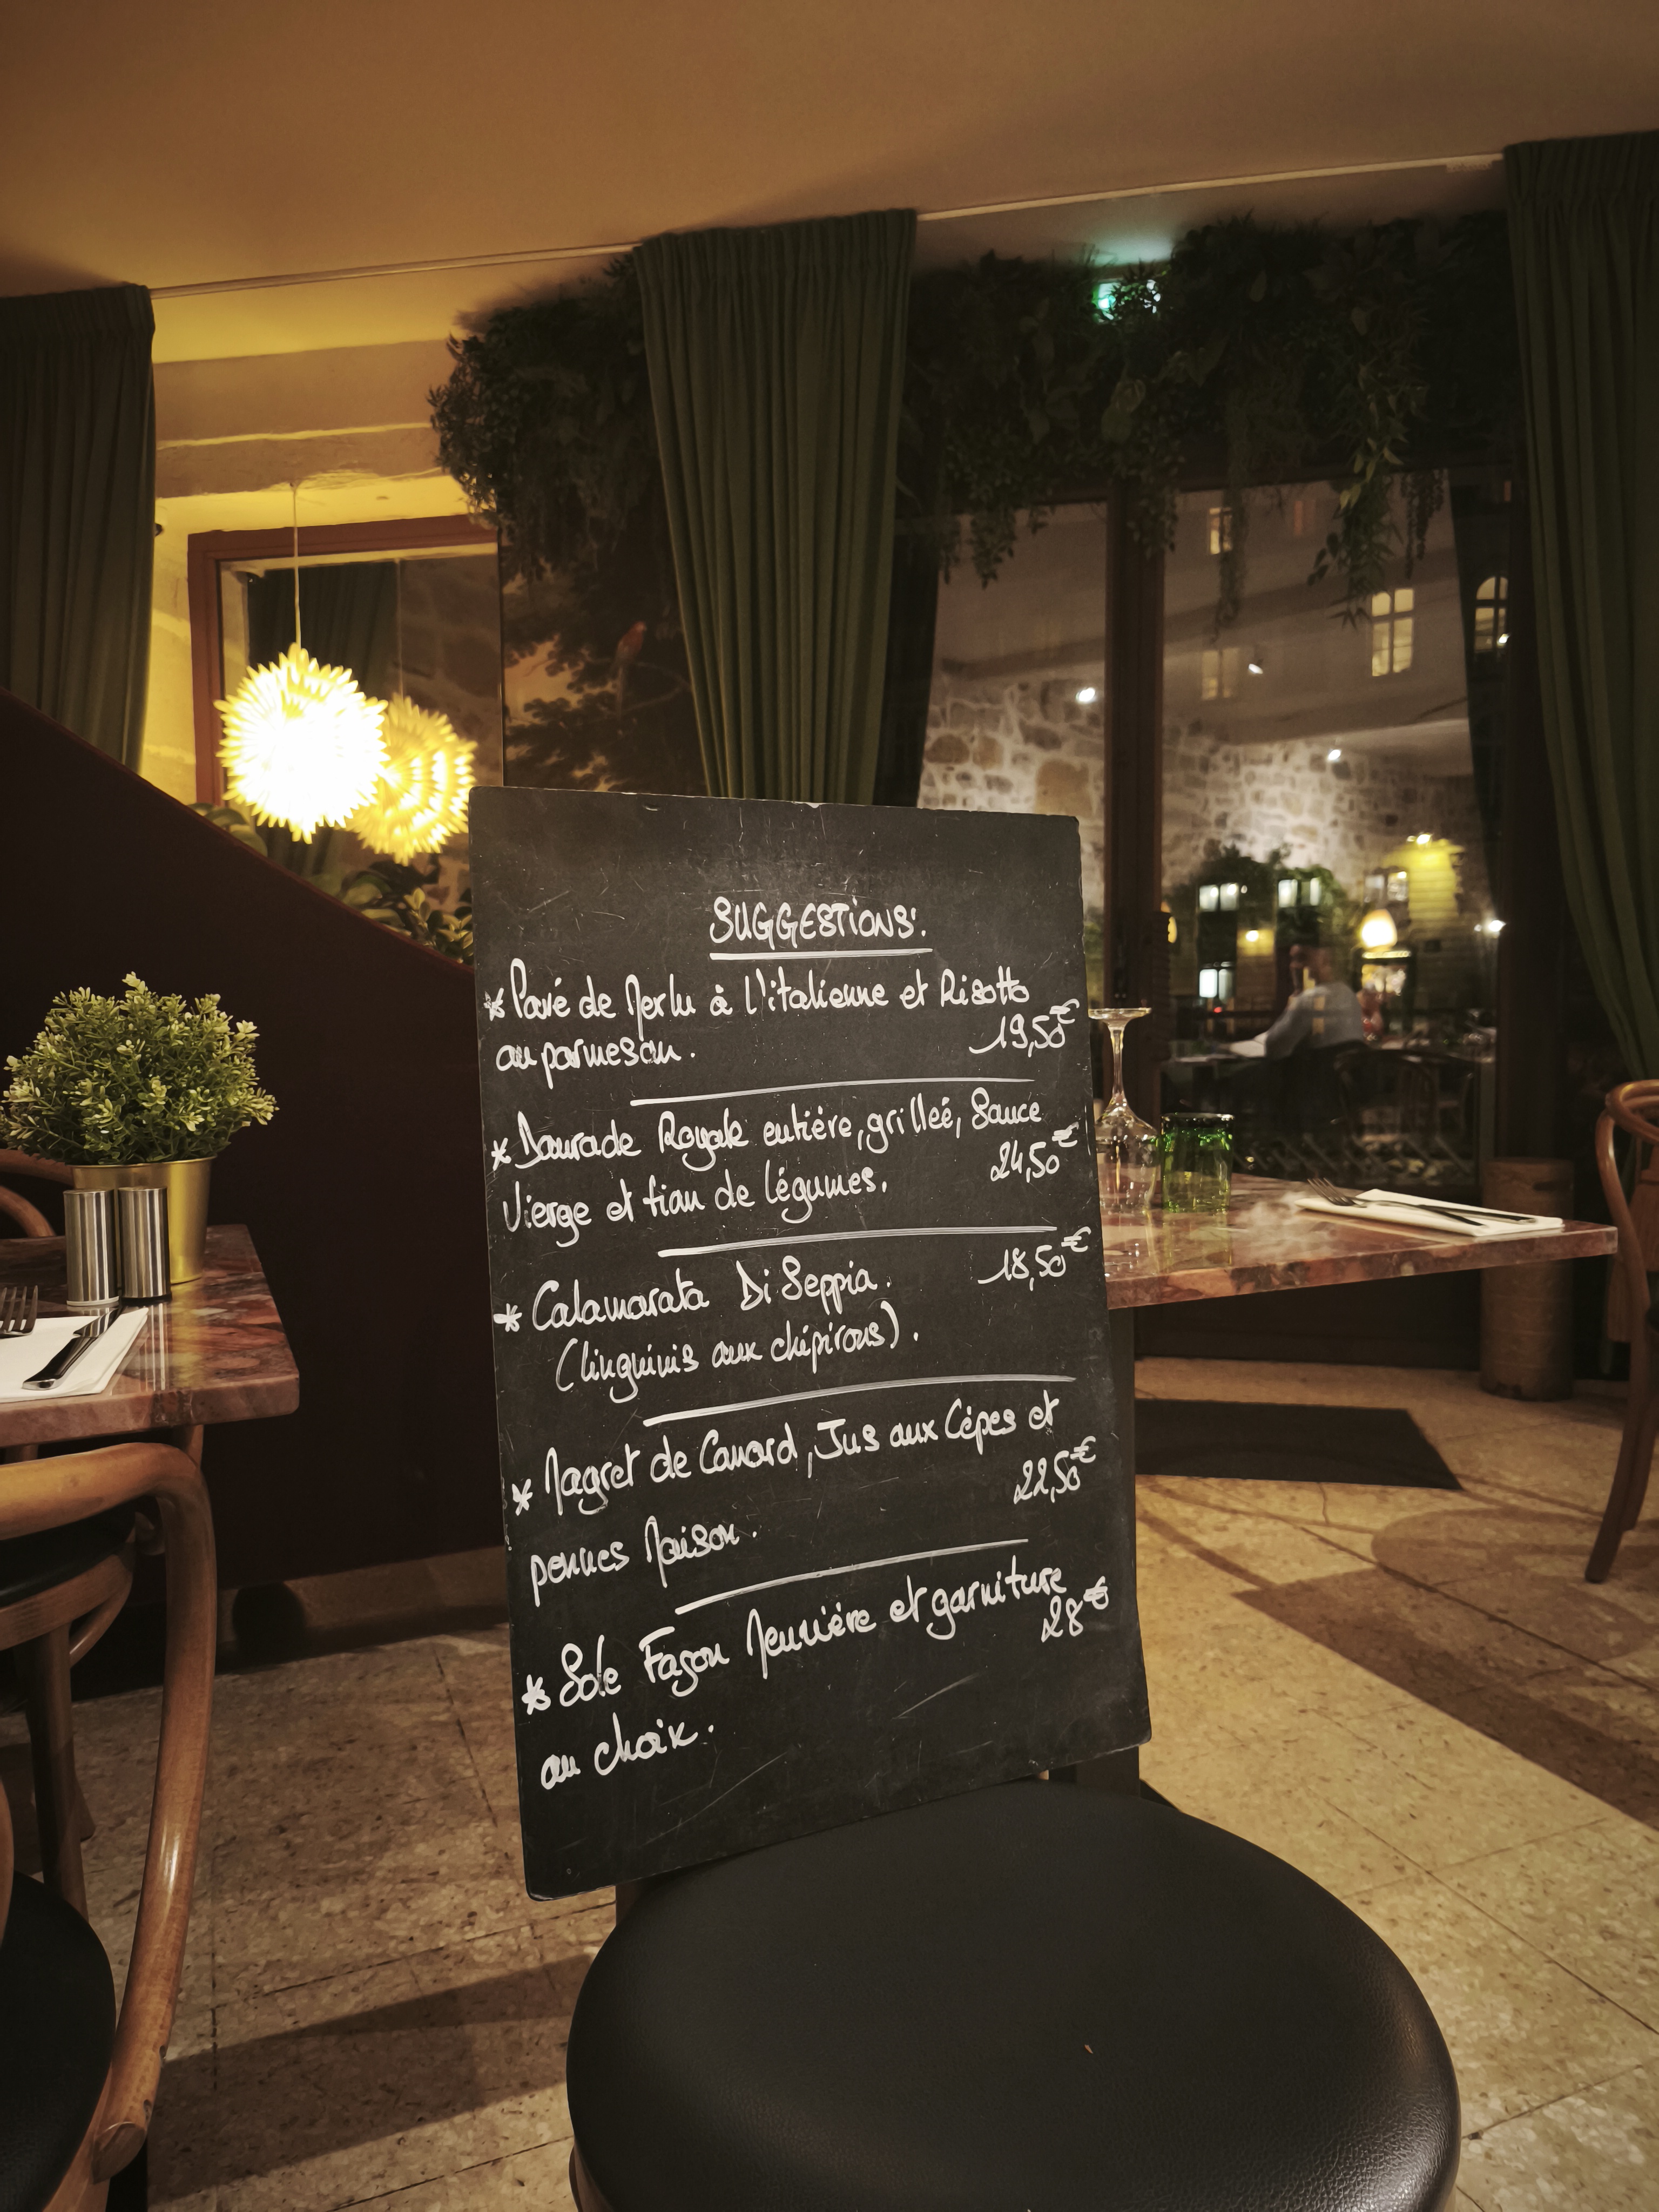 SUGGESTIONS:
* Pavé de Merlu à l'italienne et Risotto
au parmesan. 19,50€
* Daurade Royale entière, grilleé, Sauce
Vierge et flan de légumes. 24,50€
* Calamarata Di Seppia. 18,50€
(linguinis aux chipirons).
* Magret de Canard, Jus aux Cèpes et
pennes Maison. 22,50€
* Sole Façon Meunière et garniture
au choix. 28€